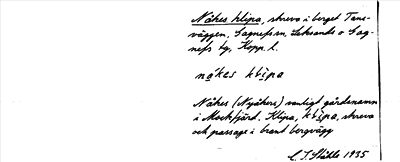 Nåkes klipa, skreva i berget Tans-
väggen, Sagnefs sn, Leksands o Gag-
nefs tg, Kopp. l.
nåkes klipa
Nåkes (Nyåkers) vanligt gårdsnamn
i Mockfjärd. Klipa, klipa, skreva
och passage i brant bergvägg
C. I. Ståhle 1935